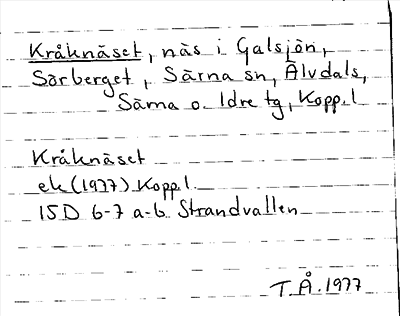 Kråknäset, näs i Galsjön,
Sörberget, Särna sn, Älvdals,
Särna o. Idre tg, Kopp.l
Kråknäset
ek (1937) Kopp.l.
15D 6-7 a-b Strandvallen
T.Å. 1977